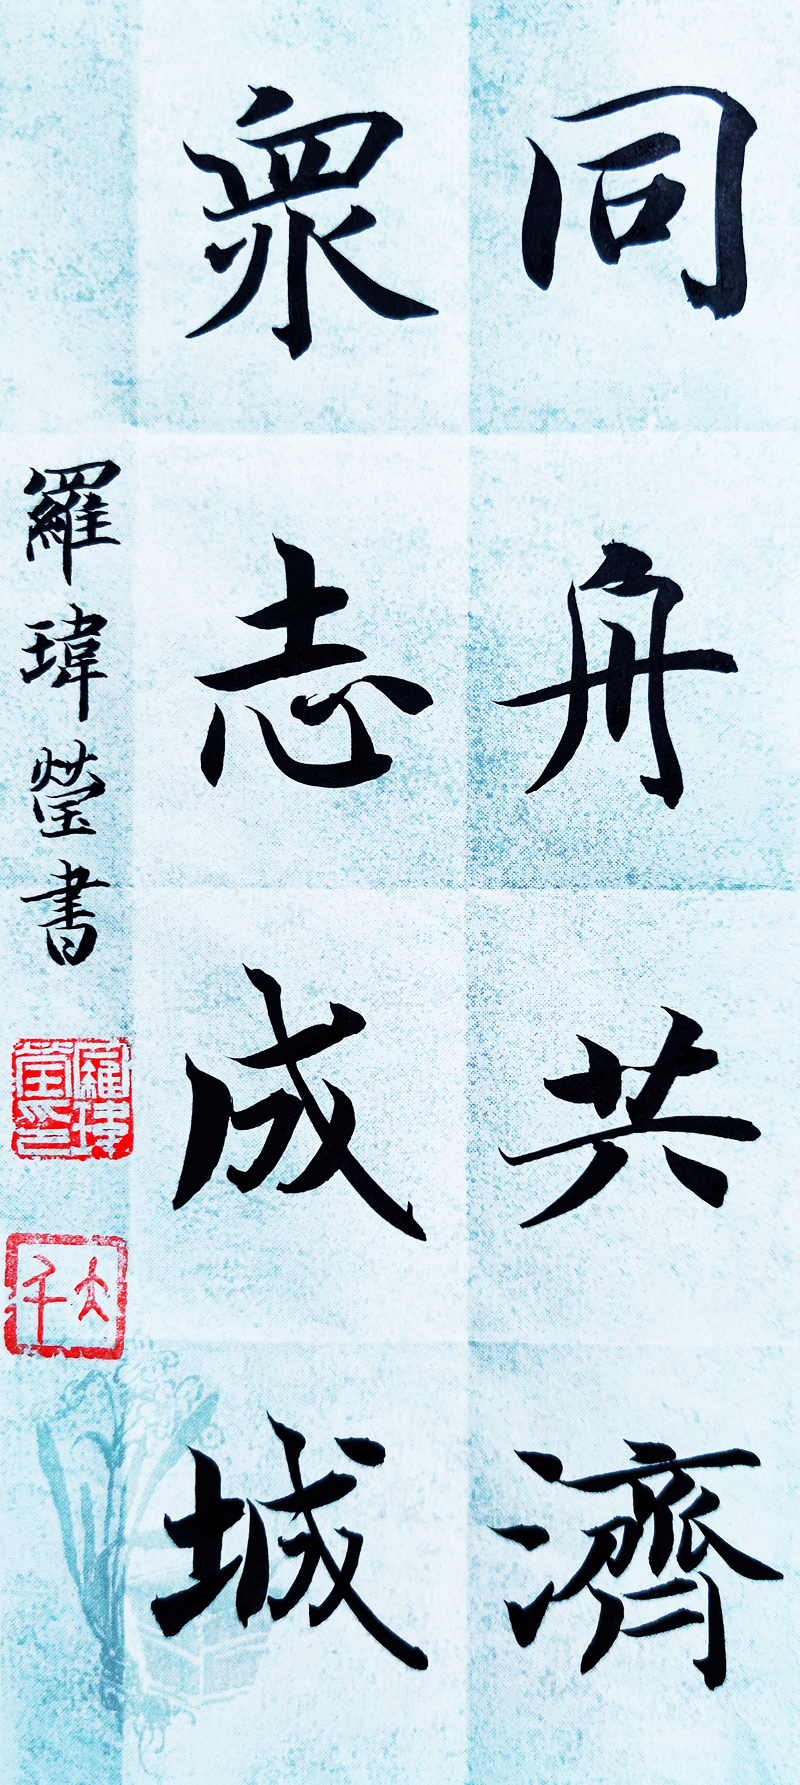 同舟共濟
眾志成城
羅瑋瑩書
羅瑋瑩印